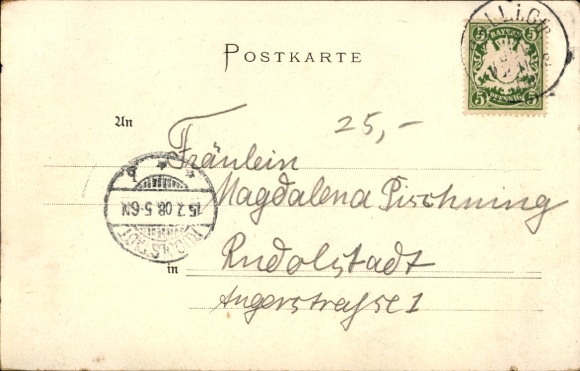 POSTKARTE
BAYERN
5 5
5 5
PFENNIG
An
25,-
Fräulein
Magdalena Pischning
15.7.08.5-6N
RUDOLSTADT
in Rudolstadt
Angerstrasse 1